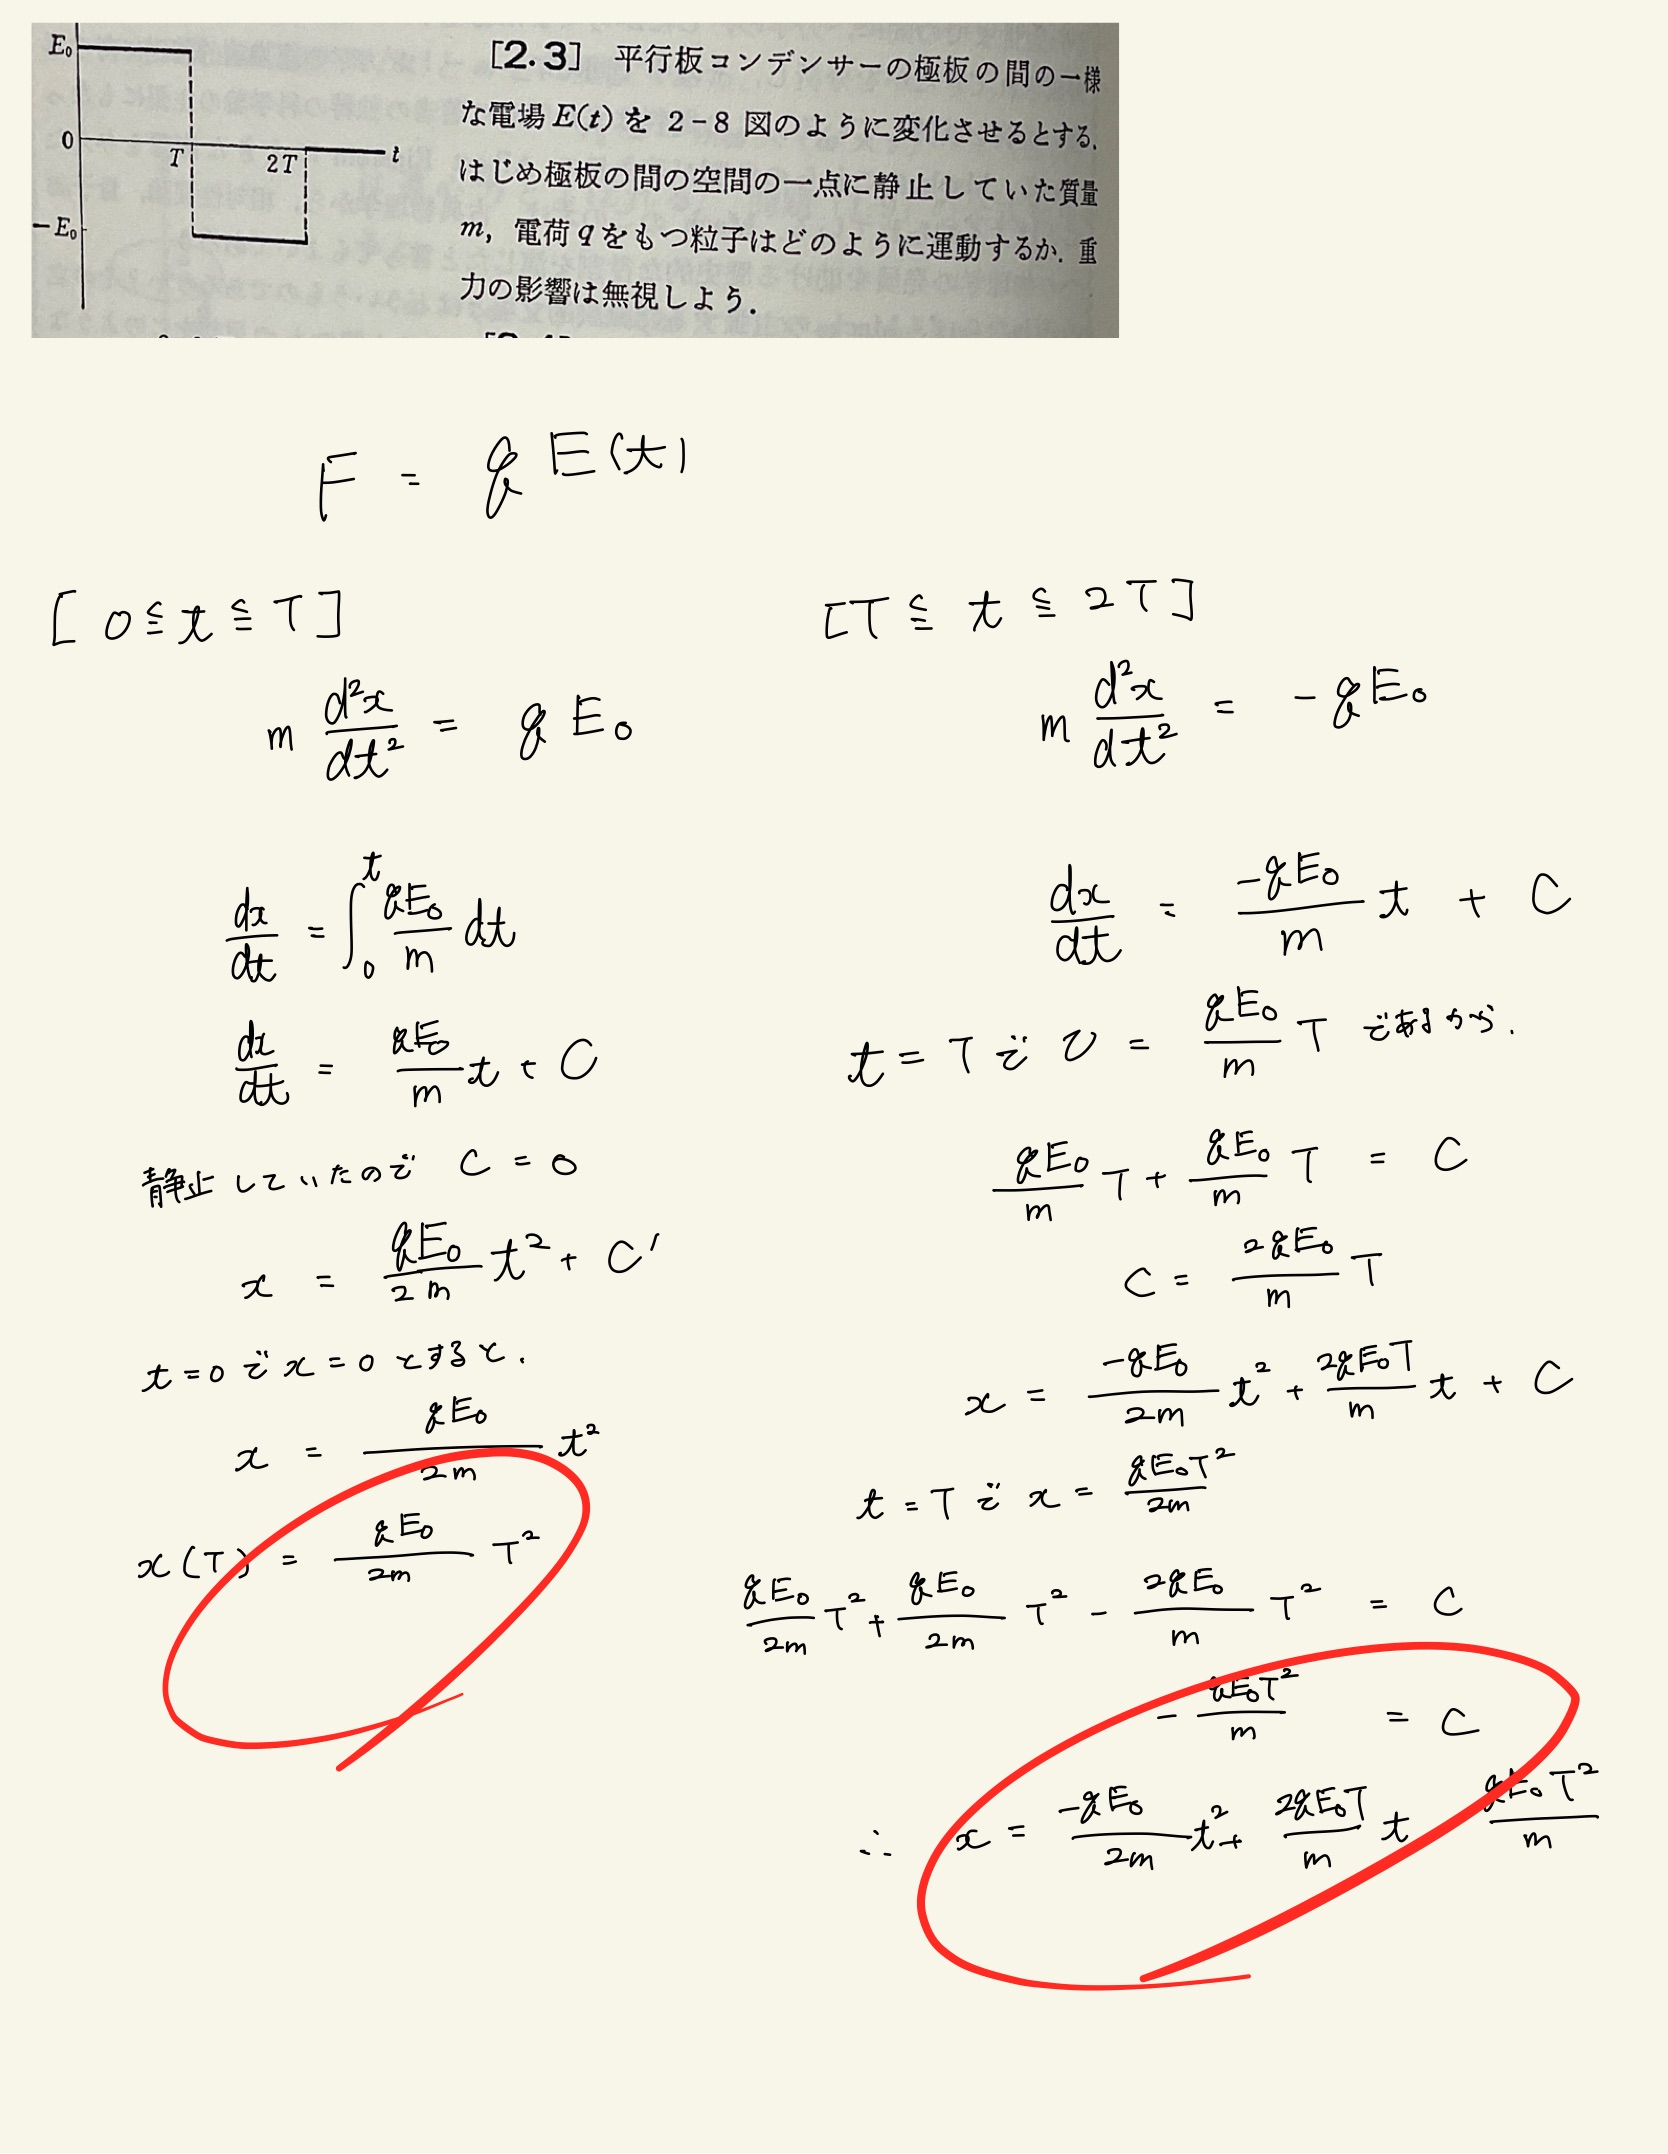 E₀
0
T
2T
t
−E₀
[2.3] 平行板コンデンサーの極板の間の一様
な電場E(t)を 2-8 図のように変化させるとする.
はじめ極板の間の空間の一点に静止していた質量
m, 電荷qをもつ粒子はどのように運動するか. 重
力の影響は無視しよう.
F = qE(t)
[0≦t≦T]
m d²x/dt² = qE₀
dx/dt = ∫₀ᵗ qE₀/m dt
dx/dt = qE₀/m t + C
静止していたので C = 0
x = qE₀/2m t² + C′
t=0でx=0とすると.
x = qE₀/2m t²
x(T) = qE₀/2m T²
[T≦t≦2T]
m d²x/dt² = -qE₀
dx/dt = -qE₀/m t + C
t=Tで v = qE₀/m T であるから.
qE₀/m T + qE₀/m T = C
C = 2qE₀/m T
x = -qE₀/2m t² + 2qE₀T/m t + C
t=Tで x = qE₀T²/2m
qE₀/2m T² + qE₀/2m T² - 2qE₀/m T² = C
- qE₀T²/m = C
∴ x = -qE₀/2m t² + 2qE₀T/m t qE₀T²/m